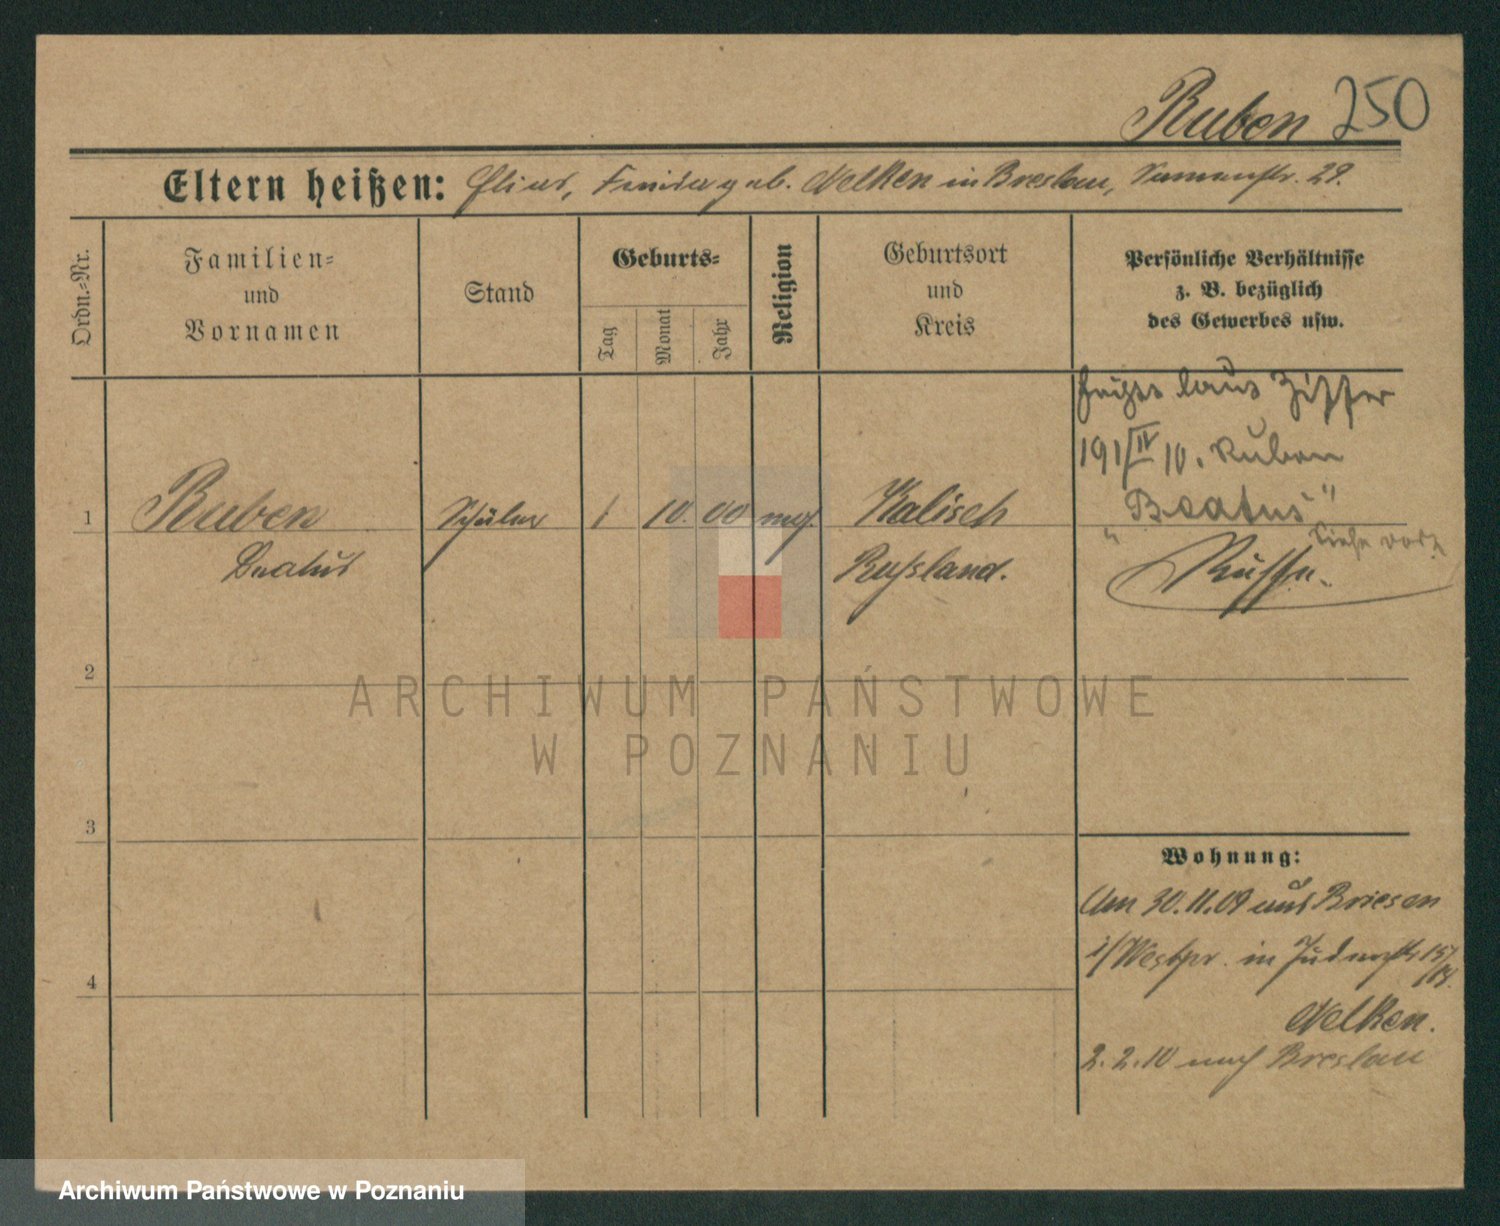 Ruben 250
Eltern heißen: Elias, geb. Nelken in Breslau, 29.
Ordn.-Nr.
Familien-
und
Vornamen
Stand
Geburts-
Tag
Monat
Jahr
Religion
Geburtsort
und
Kreis
Persönliche Verhältnisse
z. B. bezüglich
des Gewerbes usw.
laut Ziffer
191/IV 10. Ruben
"Beatus"
siehe
1 Ruben Schüler 1 10. 00 mos. Kalisch
Beatus Russland. Russe.
2
3
4
ARCHIWUM PAŃSTWOWE
W POZNANIU
Wohnung:
Am 30.11.09 aus Briesen
i/Westpr. in Judenstr. 15/
Nelken.
2.2.10 nach Breslau
Archiwum Państwowe w Poznaniu